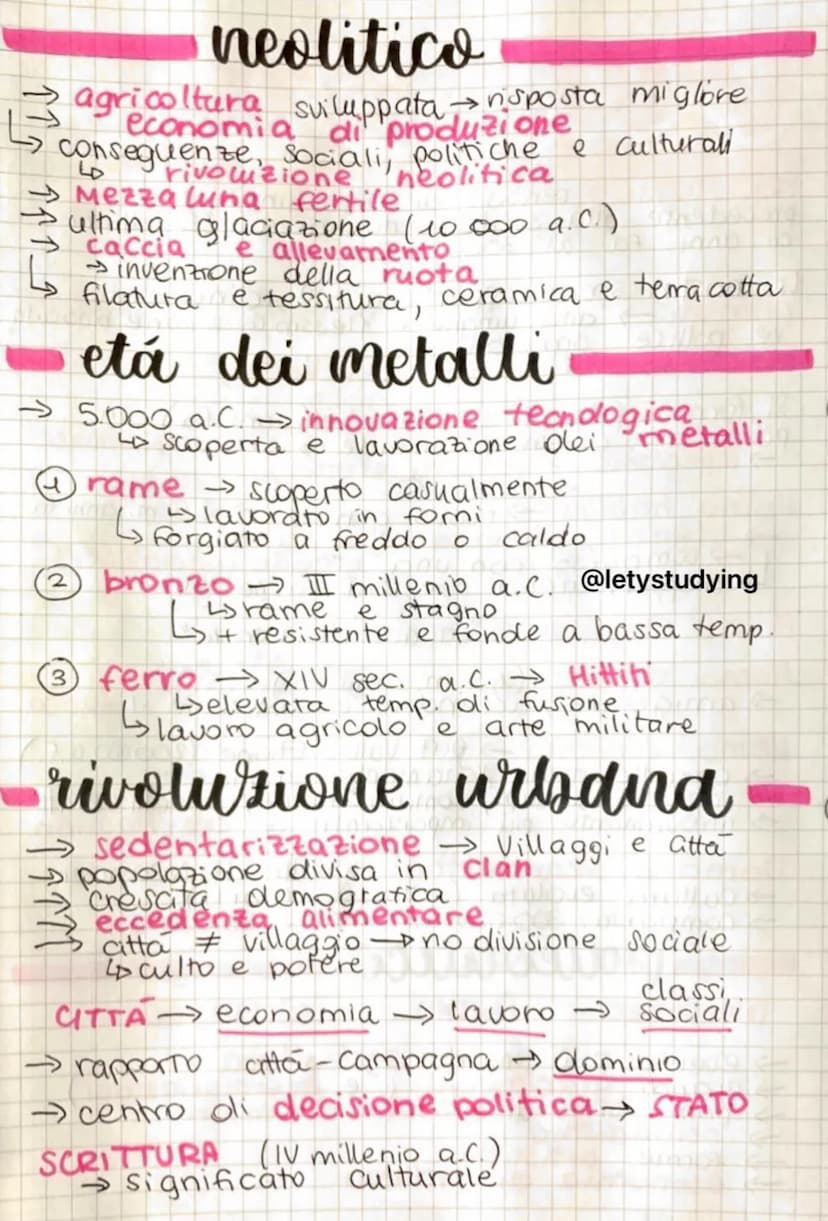 neolitico
→ agricoltura sviluppata → risposta migliore
↳ → economia di produzione
↳ conseguenze, sociali, politiche e culturali
↳ rivoluzione neolitica
→ Mezzaluna fertile
→ ultima glaciazione (10 000 a.C.)
→ caccia e allevamento
→ invenzione della ruota
↳ filatura e tessitura, ceramica e terracotta
etá dei metalli
→ 5.000 a.C. → innovazione tecnologica
↳ scoperta e lavorazione dei metalli
① rame → scoperto casualmente
↳ lavorato in forni
↳ forgiato a freddo o caldo
② bronzo → III millenio a.C. @letystudying
↳ rame e stagno
↳ + resistente e fonde a bassa temp.
③ ferro → XIV sec. a.C. → Hittiti
↳ elevata temp. di fusione
↳ lavoro agricolo e arte militare
rivoluzione urbana
→ sedentarizzazione → villaggi e città
→ popolazione divisa in clan
→ crescita demografica
→ eccedenza alimentare
→ città ≠ villaggio → no divisione sociale
↳ culto e potere
CITTÀ → economia → lavoro → classi sociali
→ rapporto città-campagna → dominio
→ centro di decisione politica → STATO
SCRITTURA (IV millenio a.C.)
→ significato culturale